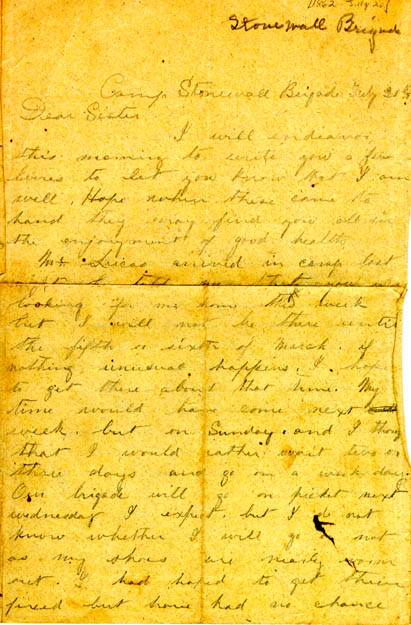 Stonewall Brigade
Camp Stonewall Brigade
Dear Sister
I will endeavor
this morning to write you a few
lines to let you know that I am
well, Hope when these come to
hand they may find you all in
the enjoyment of good health
Mr Lucas arrived in camp last
looking for me home this week
but I will not be there until
the fifth or sixth of March. if
nothing unusual happens. I hope
to get there about that time. My
time would have come next
week. but on Sunday. and I
that I would rather wait two or
three days and go on a week day.
Our brigade will go on picket next
wednesday I expect. but I do not
know whether I will go not
as my shoes are nearly worn
out. I had hoped to get them
but have had no chance